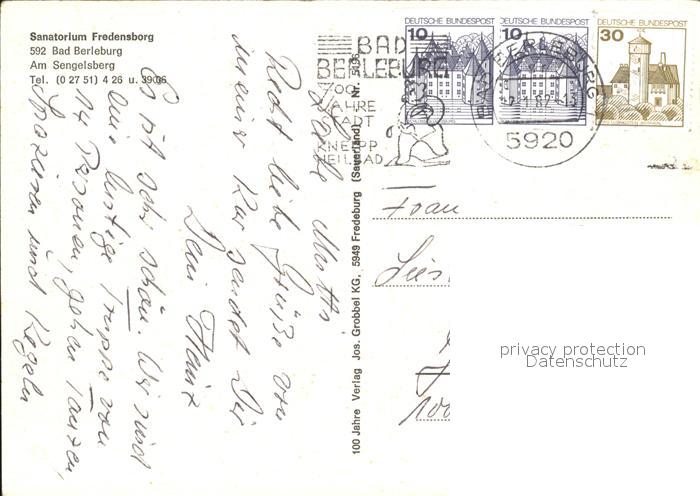 Sanatorium Fredensborg
592 Bad Berleburg
Am Sengelsberg
Tel. (0 27 51) 4 26 u. 3906
10
DEUTSCHE BUNDESPOST
10
DEUTSCHE BUNDESPOST
30
DEUTSCHE BUNDESPOST
BAD
BERLEBURG
700
JAHRE
STADT
KNEIPP
HEILBAD
BAD BERLEBURG
5920
Liebe Mutti
Recht liebe Grüße von
meiner Kur sendet Dir
Dein Heinz
Es ist sehr schön. Wir sind
eine lustige Truppe von
14 Personen, gehen tanzen,
spazieren und Kegeln
100 Jahre Verlag Jos. Grobbel KG, 5949 Fredeburg (Sauerland) Nr.
Frau
100
privacy protection
Datenschutz